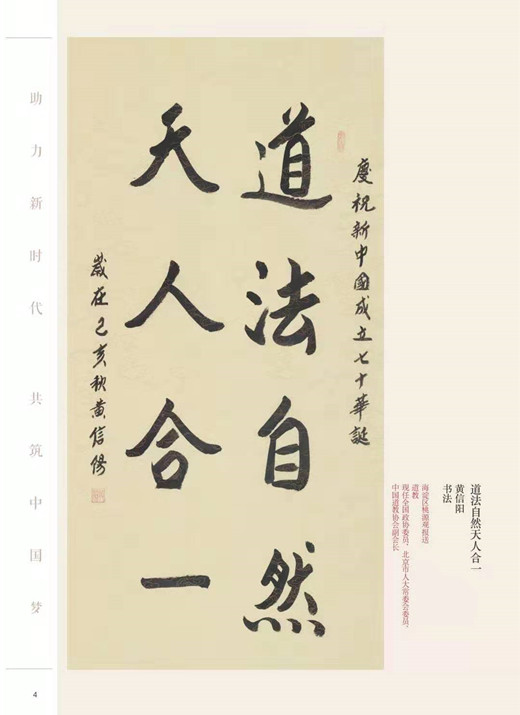 慶祝新中國成立七十華誕
道法自然
天人合一
歲在己亥秋黄信陽
道法自然天人合一
黄信阳
书法
海淀区桃源观报送
道教
现任全国政协委员，北京市人大常委会委员，
中国道教协会副会长
助力新时代 共筑中国梦
4